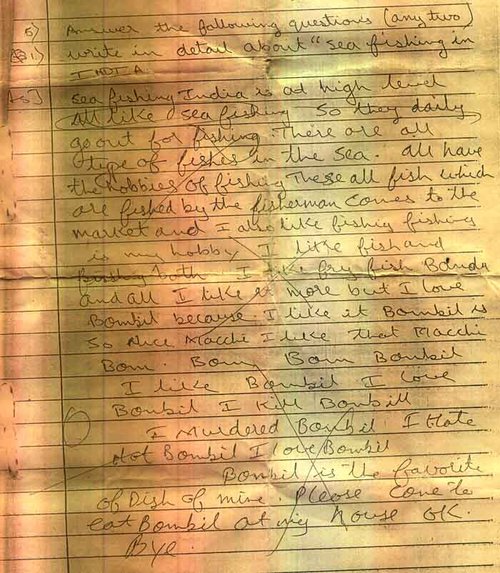 5) Answer the following questions (any two)
Q 1) write in detail about "sea fishing in
INDIA
Ans] sea fishing India is at high level
All like sea fishing So they daily
go out for fishing There are all
type of fishes in the sea. All have
the hobbies of fishing These all fish which
are fished by the fisherman comes to the
market and I also like fishing fishing
is my hobby I like fish and
fishing both I like fry fish Bonda
and all I like it more but I love
Bombil because I like it Bombil is
so Nice Macchi I like that Macchi
Bom. Bom Bom Bombil
I like Bombil I love
Bombil I Kill Bombill
I Murdered Bombil I Hate
Not Bombil I Love Bombil
Bombil is the favorite
of Dish of mine Please Come to
eat Bombil at my House OK.
Bye.